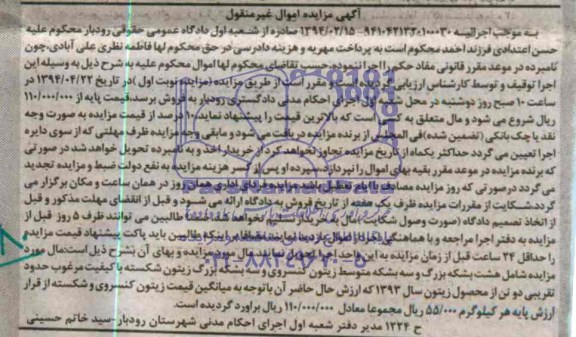 آگهی مزایده اموال غیرمنقول
به موجب اجرائیه ۹۴۱۰۴۲۱۳۲۰۱۰۰۰۳۰-۱۳۹۴/۰۲/۱۵ صادره از شعبه اول دادگاه عمومی حقوقی رودبار محکوم علیه
حسن اعتدادی فرزند احمد محکوم است به پرداخت مهریه و هزینه دادرسی در حق محکوم لها فاطمه نظری علی آبادی، چون
نامبرده در موعد مقرر قانونی مفاد حکم را اجرا ننموده، حسب تقاضای محکوم لها اموال محکوم علیه به شرح ذیل به وسیله این
اجرا توقیف و توسط کارشناس ارزیابی گردیده است و مقرر است از طریق مزایده (مزایده نوبت اول) در تاریخ ۱۳۹۴/۰۴/۲۲ در
ساعت ۱۰ صبح روز دوشنبه در محل شعبه اول اجرای احکام مدنی دادگستری رودبار به فروش برسد، قیمت پایه از ۱۱۰/۰۰۰/۰۰۰
ریال شروع می شود و مال متعلق به کسی است که بالاترین قیمت را پیشنهاد نماید، ۱۰ درصد از قیمت مزایده به صورت وجه
نقد یا چک بانکی (تضمین شده) فی المجلس از برنده مزایده دریافت می شود و مابقی وجه مزایده ظرف مهلتی که از سوی دایره
اجرا تعیین می گردد حداکثر یکماه از تاریخ مزایده تجاوز نخواهد کرد از خریدار اخذ و به نامبرده تحویل خواهد شد در صورتی
که برنده مزایده در موعد مقرر بقیه بهای اموال را نپردازد سپرده او پس از کسر هزینه مزایده به نفع دولت ضبط و مزایده تجدید
می گردد درصورتی که روز مزایده مصادف با ایام تعطیل باشد مزایده فردای اداری همان روز در همان ساعت و مکان برگزار می
گردد، شکایت از مقررات مزایده ظرف یک هفته از تاریخ فروش به دادگاه ارائه می شود و قبل از انقضای مهلت مذکور و قبل
از اتخاذ تصمیم دادگاه (صورت وصول شکایت) مال به خریدار تسلیم نخواهد شد، طالبین می توانند ظرف ۵ روز قبل از
مزایده به دفتر اجرا مراجعه و با هماهنگی اجرا از اموال بازدید نمایند، مضافا بر اینکه طالبین باید پاکت پیشنهاد قیمت مزایده
را حداقل ۲۴ ساعت قبل از زمان مزایده به این واحد اجرا تحویل نمایند، مال مورد مزایده و بهای آن بشرح ذیل است، مال مورد
مزایده شامل هشت بشکه بزرگ و سه بشکه متوسط زیتون کنسروی و سه بشکه بزرگ زیتون شکسته با کیفیت مرغوب حدود
تقریبی دو تن از محصول زیتون سال ۱۳۹۳ که ارزش حال حاضر آن با توجه به میانگین قیمت زیتون کنسروی و شکسته از قرار
ارزش پایه هر کیلوگرم ۵۵/۰۰۰ ریال مجموعا معادل ۱۱۰/۰۰۰/۰۰۰ ریال براورد گردیده است.
ح ۱۲۲۴ مدیر دفتر شعبه اول اجرای احکام مدنی شهرستان رودبار-سید خاتم حسینی